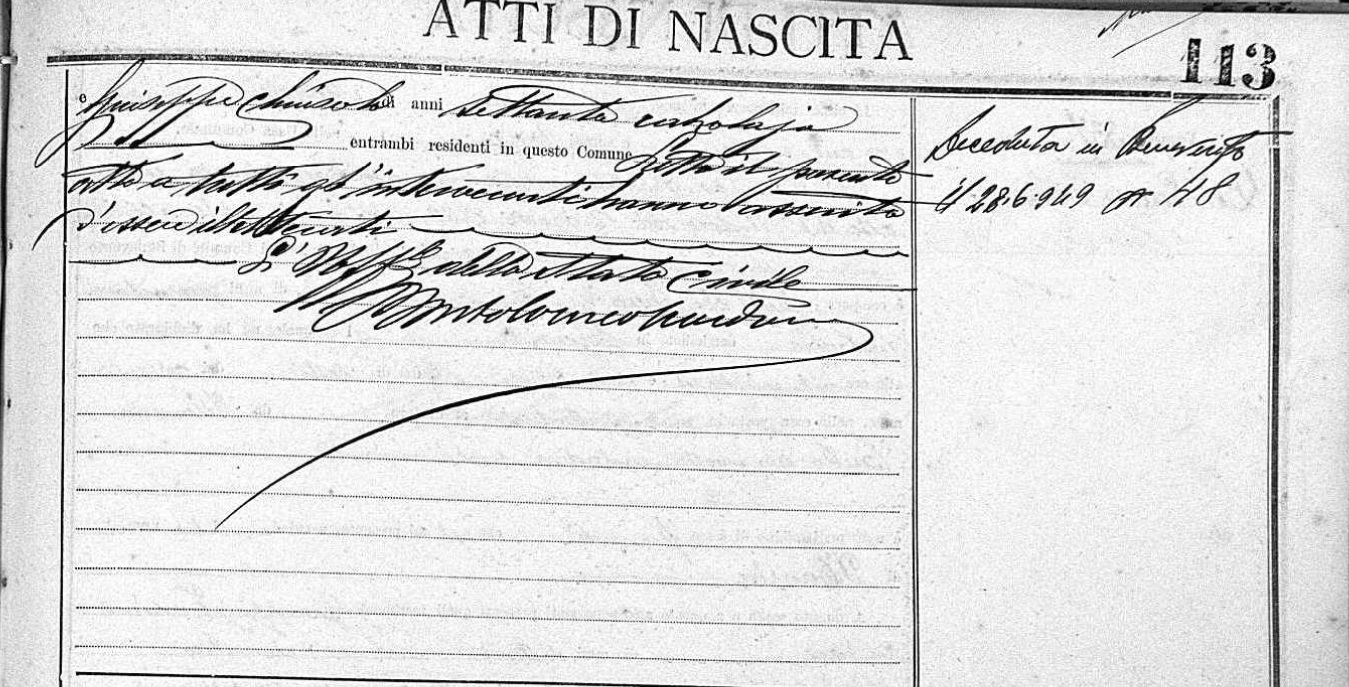 ATTI DI NASCITA
113
e Giuseppe Chiusolo di anni settanta calzolajo
entrambi residenti in questo Comune. Letto il presente
atto a tutti gl'intervenuti hanno asserito
d'essere illetterati
L'Uff.le dello Stato Civile
Bartolomeo
Deceduta in Benevento
il 28.6.949 n 48